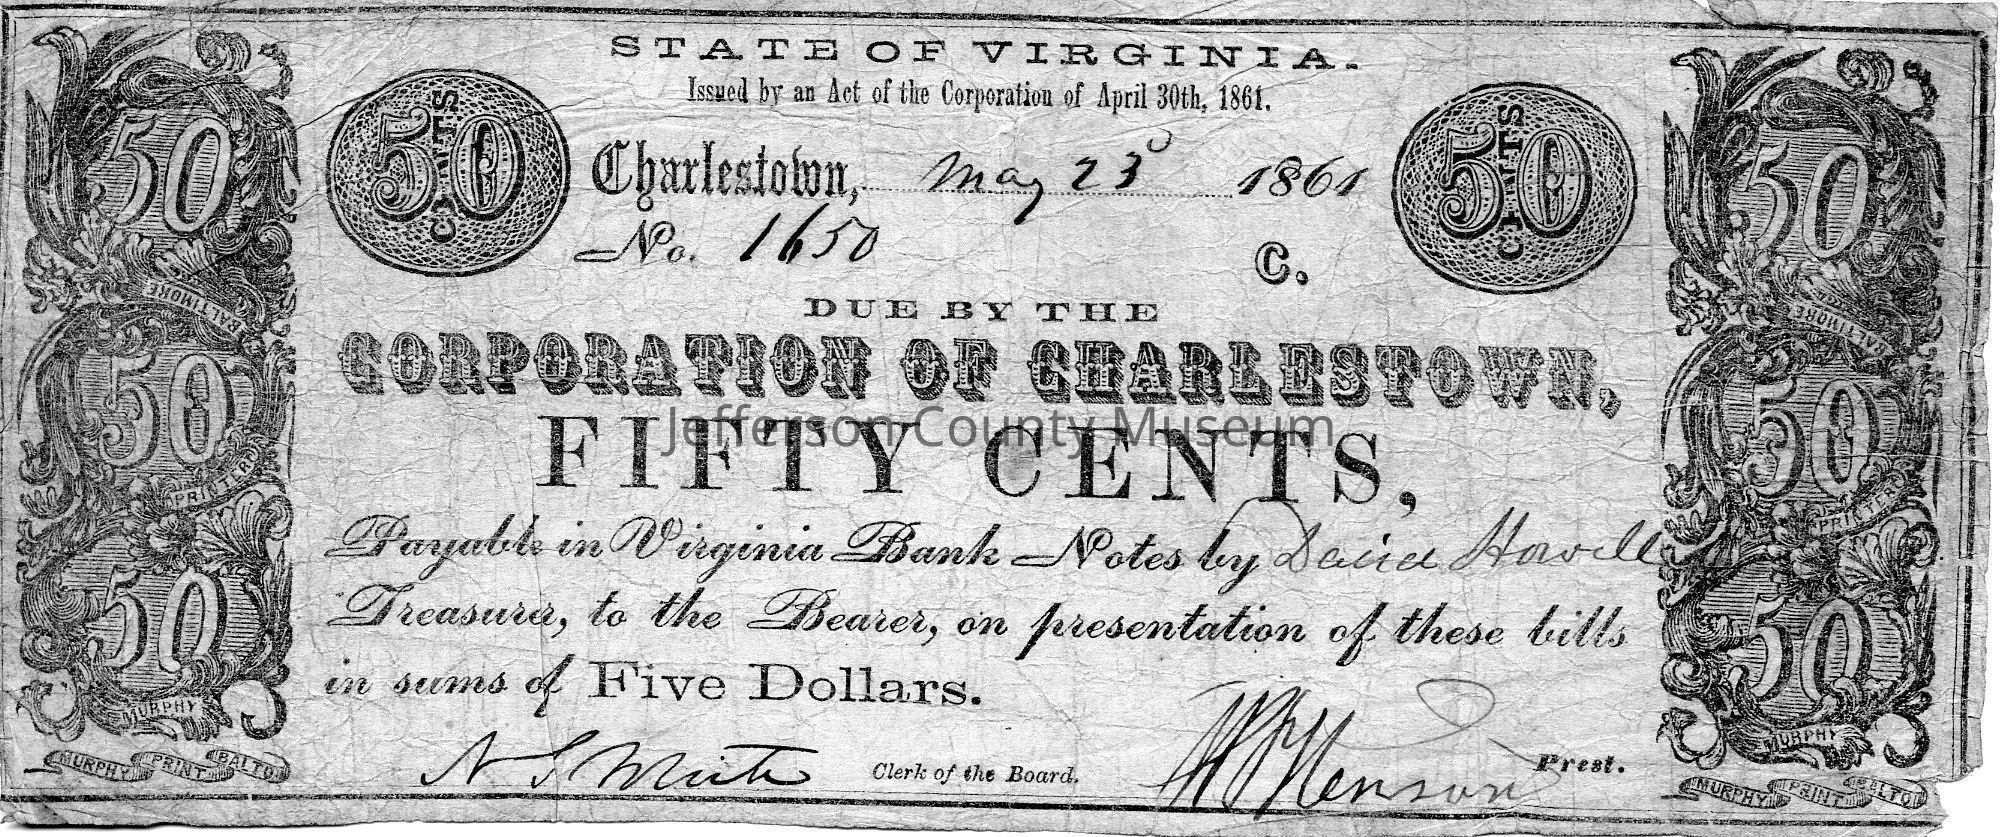 STATE OF VIRGINIA.
Issued by an Act of the Corporation of April 30th, 1861.
50 CENTS
50 CENTS
Charlestown, May 23 1861
No. 1650
C.
DUE BY THE
CORPORATION OF CHARLESTOWN,
Jefferson County Museum
FIFTY CENTS,
Payable in Virginia Bank Notes by David Howell
Treasurer, to the Bearer, on presentation of these bills
in sums of Five Dollars.
N S White Clerk of the Board.
Henson Prest.
50
BALTIMORE
50
PRINTERS
50
MURPHY
MURPHY PRINT BALTO
50
BALTIMORE
50
PRINTERS
50
MURPHY
MURPHY PRINT BALTO